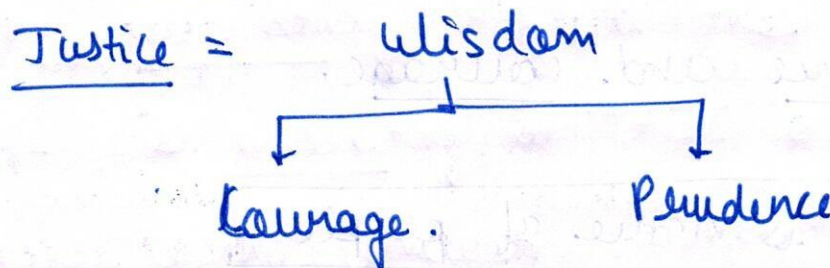 Justice = Wisdom
Courage. Prudence